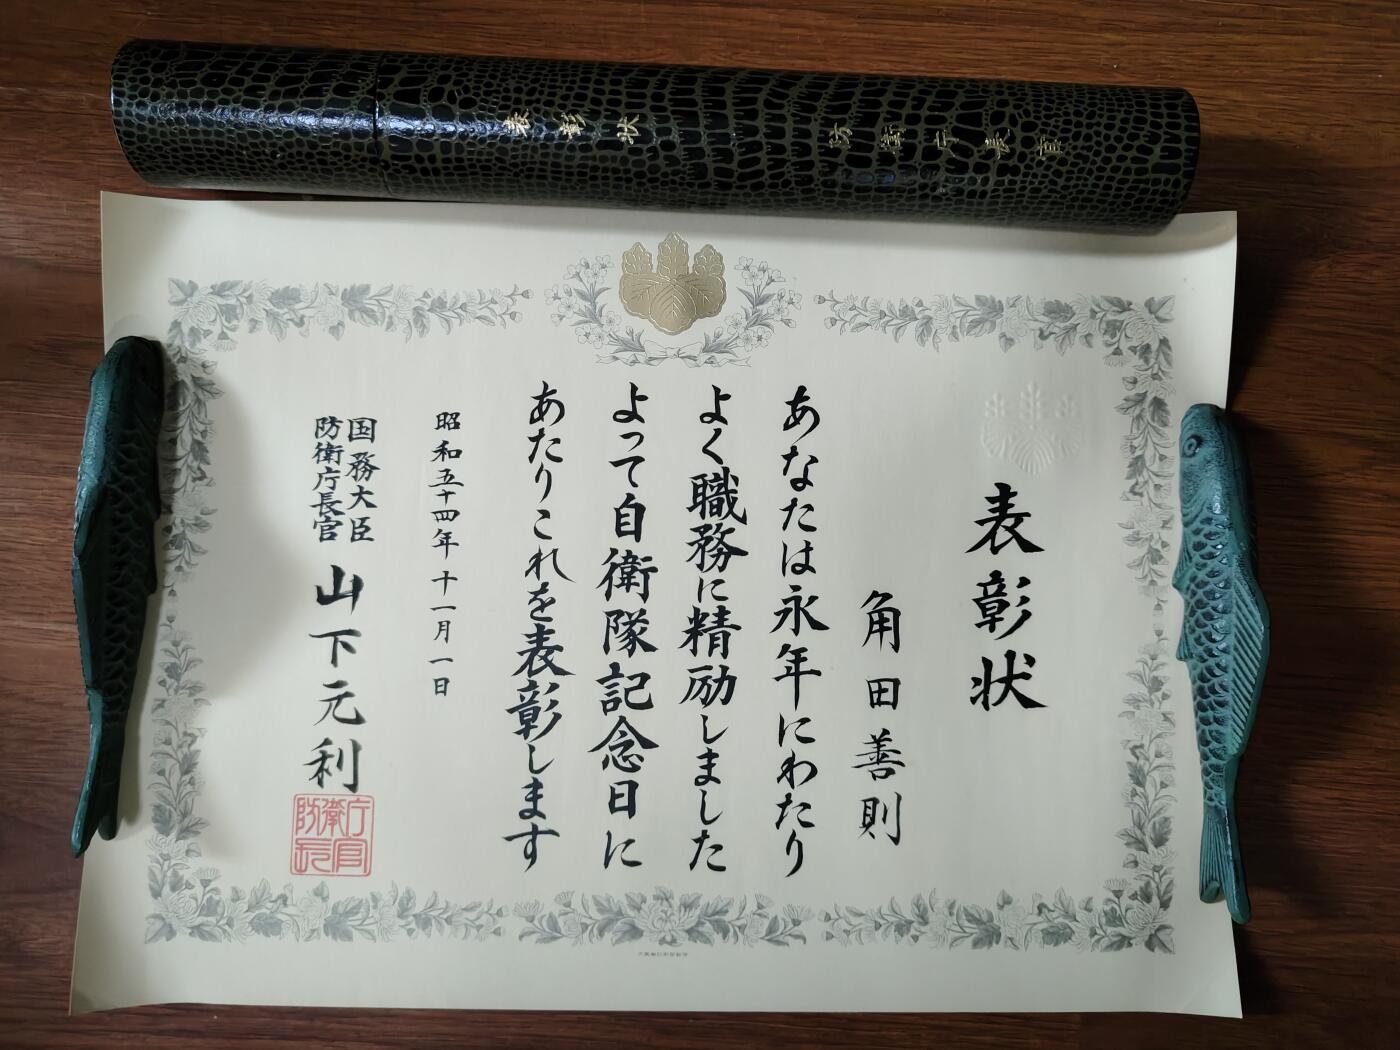 表彰状
防衛庁長官
表彰状
角田善則
あなたは永年にわたり
よく職務に精励しました
よって自衛隊記念日に
あたりこれを表彰します
昭和五十四年十一月一日
国務大臣
防衛庁長官
山下元利
防衛庁
長官